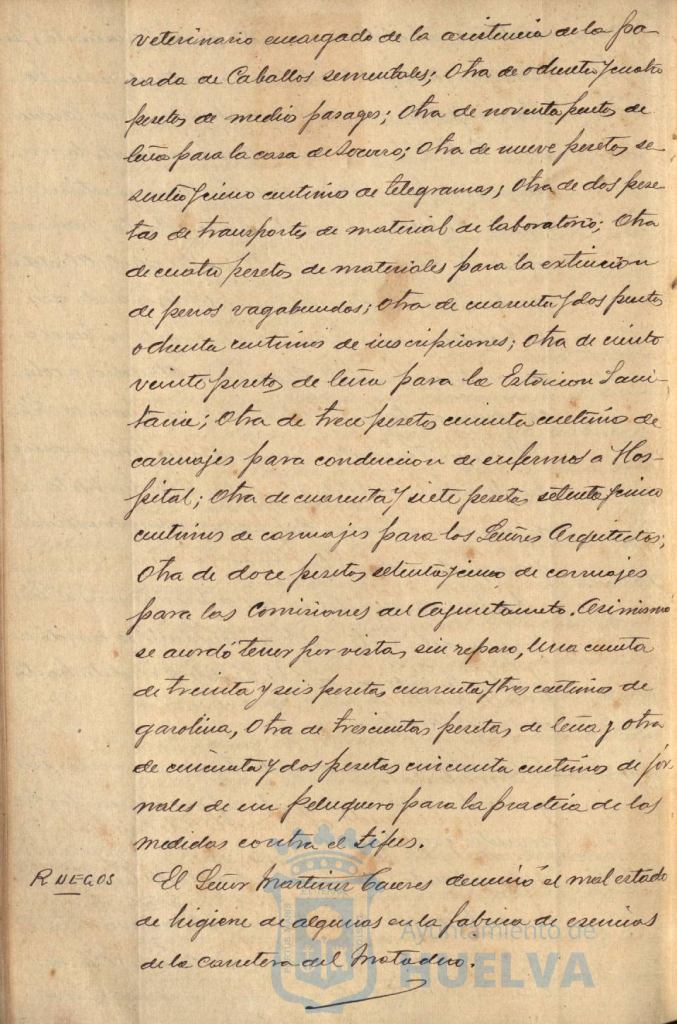 veterinario encargado de la asistencia de la pa-
rada de Caballos sementales; Otra de ochenta y cuatro
pesetas de medios pasages; Otra de noventa pesetas de
leña para la casa de Socorro; Otra de nueve pesetas se-
senta y cinco centimos de telegramas; Otra de dos pese-
tas de transportes de material de laboratorio; Otra
de cuatro pesetas de materiales para la extincion
de perros vagabundos; Otra de cuarenta y dos pesetas
ochenta centimos de inscripciones; Otra de ciento
veinte pesetas de leña para la Estacion Sani-
taria; Otra de trece pesetas cincuenta centimos de
carruajes para conduccion de enfermos a Hos-
pital; Otra de cuarenta y siete pesetas setenta y cinco
centimos de carruajes para los Señores Arquitectos;
Otra de doce pesetas setenta y cinco de carruajes
para las Comisiones del Ayuntamiento. Asimismo
se acordó tener por vistas, sin reparo, Una cuenta
de treinta y seis pesetas cuarenta y tres centimos de
gasolina, Otra de trescientas pesetas de leña y otra
de cincuenta y dos pesetas cincuenta centimos de jor-
nales de un peluquero para la practica de las
medidas contra el tifus.
RUEGOS El Señor Martinez Caceres denunció el mal estado
de higiene de algunas en la fabrica de esencias
de la carretera del Matadero.
Ayuntamiento de
HUELVA